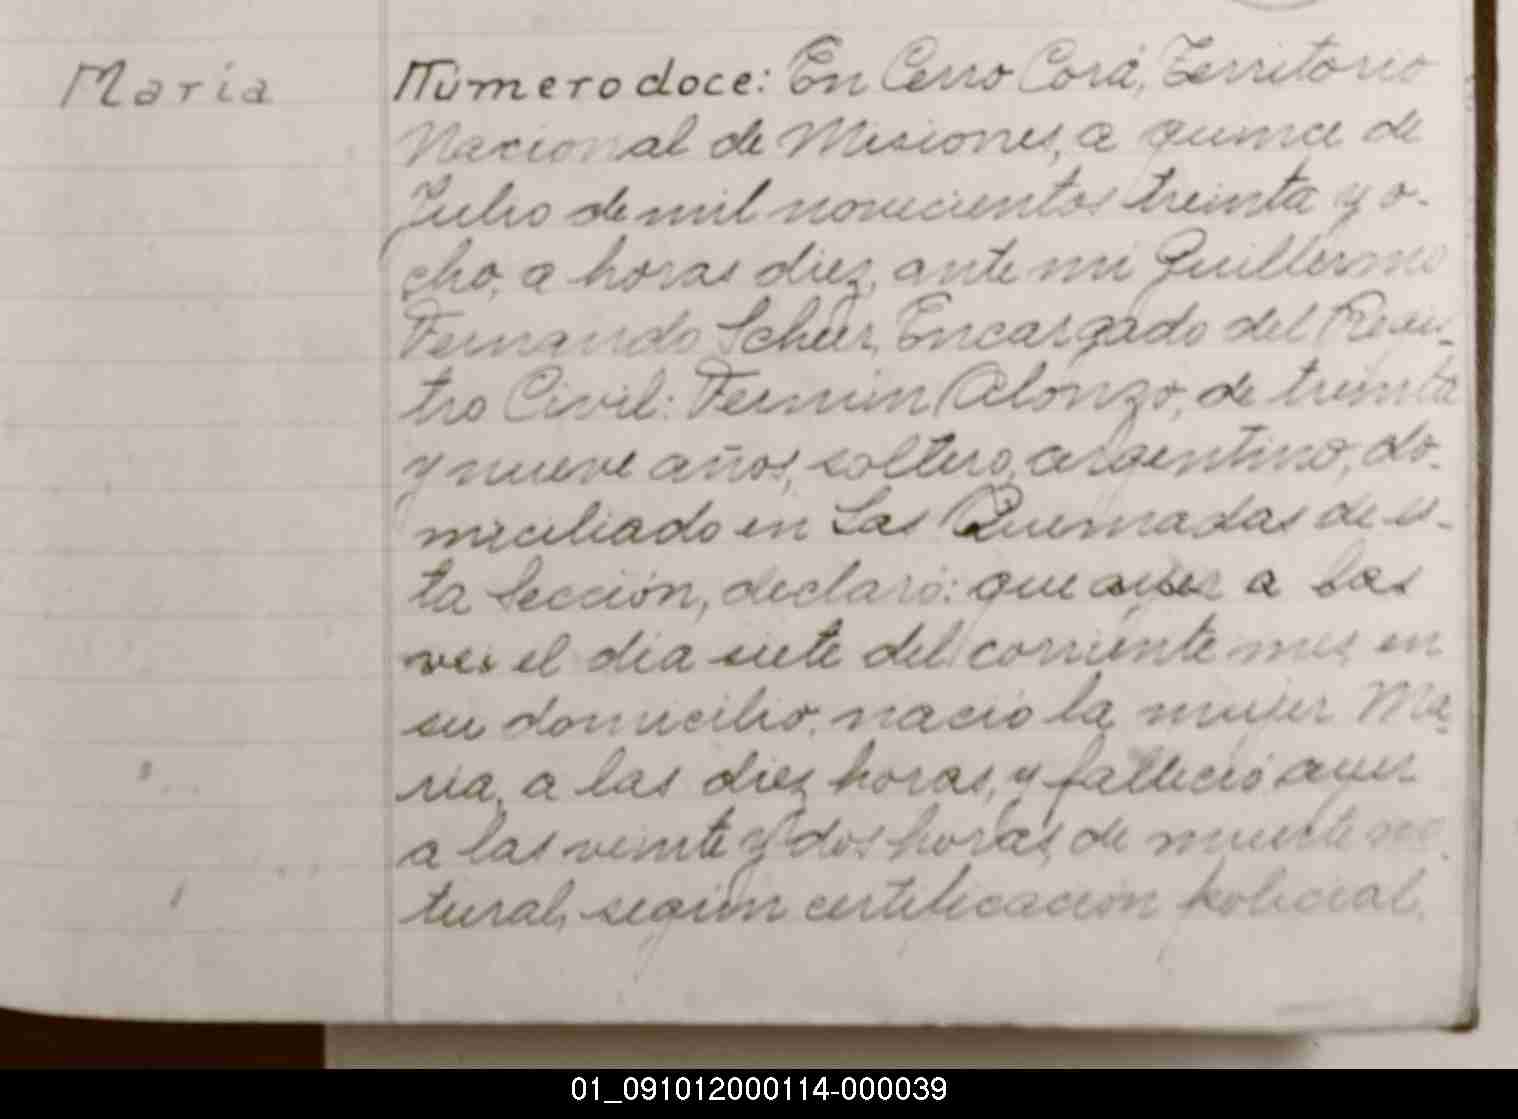 María
Número doce: En Cerro Corá, Territorio
Nacional de Misiones, a quince de
Julio de mil novecientos treinta y o-
cho, a horas diez, ante mi Guillermo
Fernando Scheer, Encargado del Regis-
tro Civil: Fermin Alonzo, de treinta
y nueve años, soltero, argentino, do-
miciliado en Las Quemadas de es-
ta Sección, declaró: que ayer a las
el dia siete del corriente mes en
su domicilio, nació la mujer Ma-
ria, a las diez horas, y falleció ayer
a las veinte y dos horas, de muerte na-
tural, según certificación policial,
01_091012000114-000039